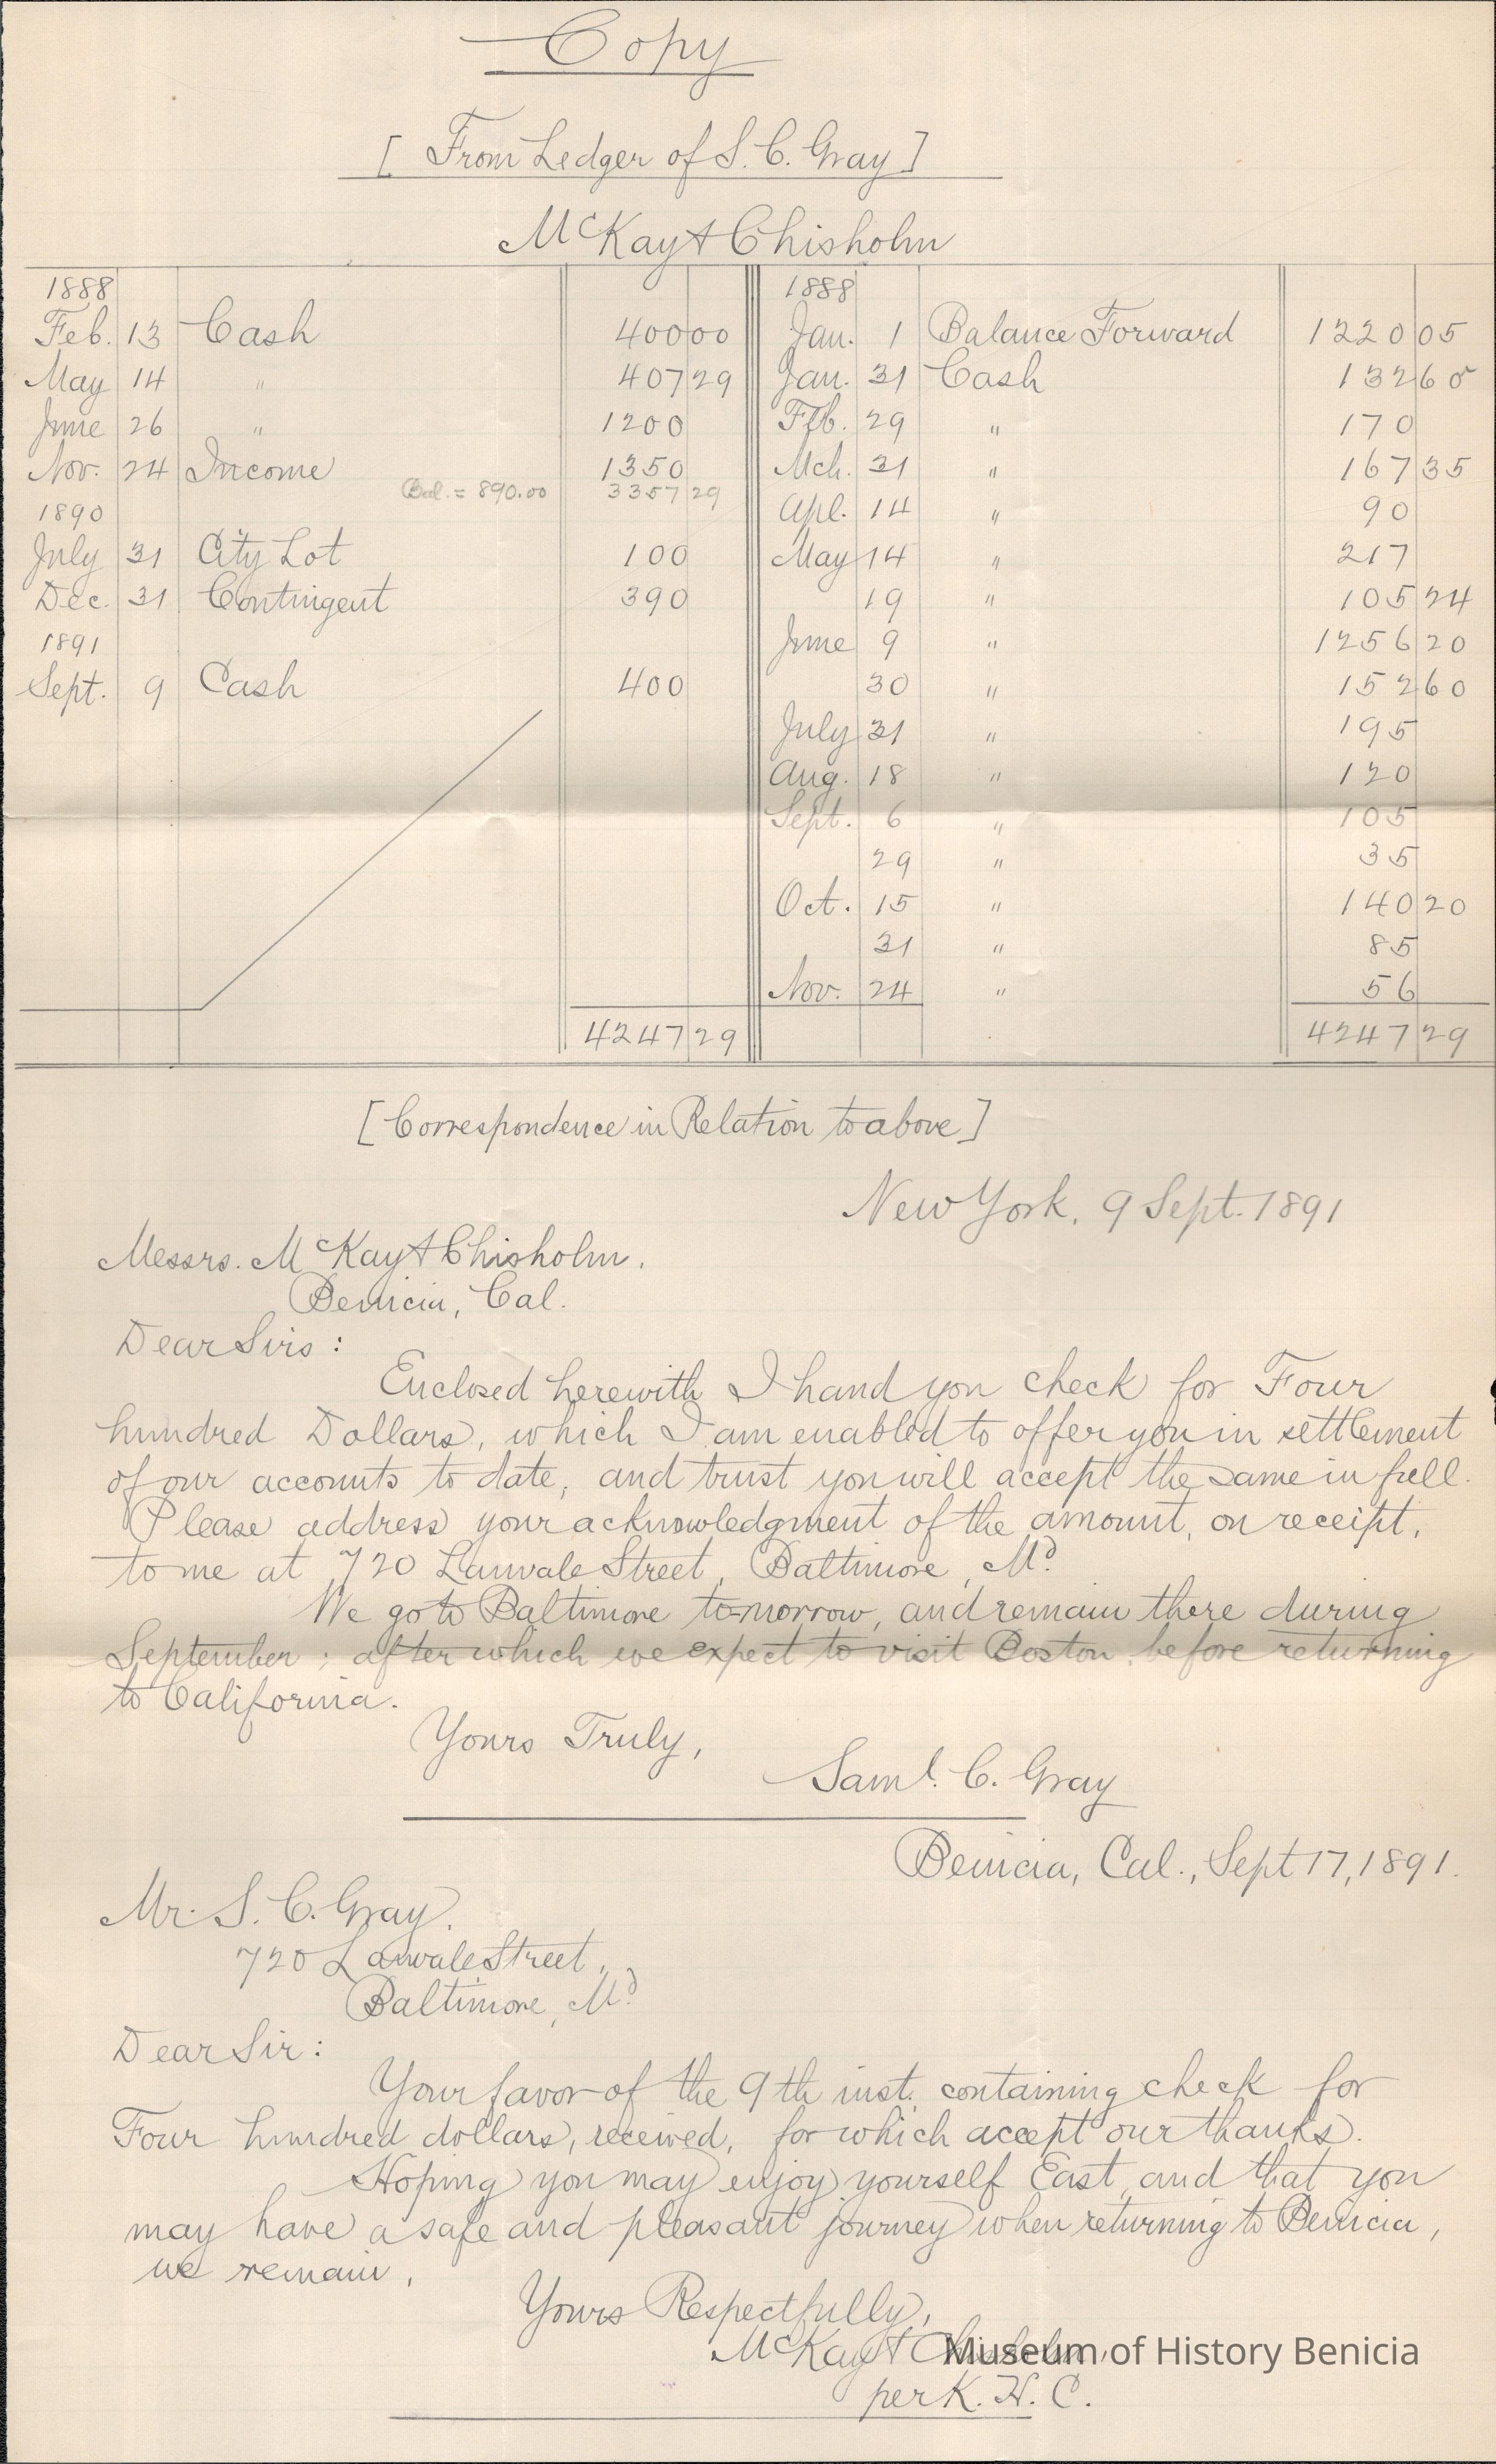 Copy
[From Ledger of S. C. Gray]
McKay & Chisholm
1888 1888
Feb. 13 Cash 400 00 Jan. 1 Balance Forward 1220 05
May 14 " 407 29 Jan. 31 Cash 132 65
June 26 " 1200 Feb. 29 " 170
Nov. 24 Income 1350 Mch. 31 " 167 35
Bal. = 890.00 3357 29
1890 Apl. 14 " 90
July 31 City Lot 100 May 14 " 217
Dec. 31 Contingent 390 19 " 105 24
1891 June 9 " 1256 20
Sept. 9 Cash 400 30 " 152 60
July 31 " 195
Aug. 18 " 120
Sept. 6 " 105
29 " 35
Oct. 15 " 140 20
31 " 85
Nov. 24 " 56
4247 29 4247 29
[Correspondence in Relation to above]
New York, 9 Sept. 1891
Messrs. McKay & Chisholm.
Benicia, Cal.
Dear Sirs:
Enclosed herewith I hand you check for Four
hundred Dollars, which I am enabled to offer you in settlement
of our accounts to date, and trust you will accept the same in full.
Please address your acknowledgment of the amount, on receipt,
to me at 720 Lanvale Street, Baltimore, Md.
We go to Baltimore to-morrow, and remain there during
September; after which we expect to visit Boston before returning
to California.
Yours Truly,
Saml. C. Gray
Benicia, Cal., Sept 17, 1891.
Mr. S. C. Gray.
720 Lanvale Street,
Baltimore, Md.
Dear Sir:
Your favor of the 9th inst. containing check for
Four hundred dollars, received, for which accept our thanks.
Hoping you may enjoy yourself East, and that you
may have a safe and pleasant journey when returning to Benicia,
we remain,
Yours Respectfully,
McKay & Chisholm,
Museum of History Benicia
per K. H. C.